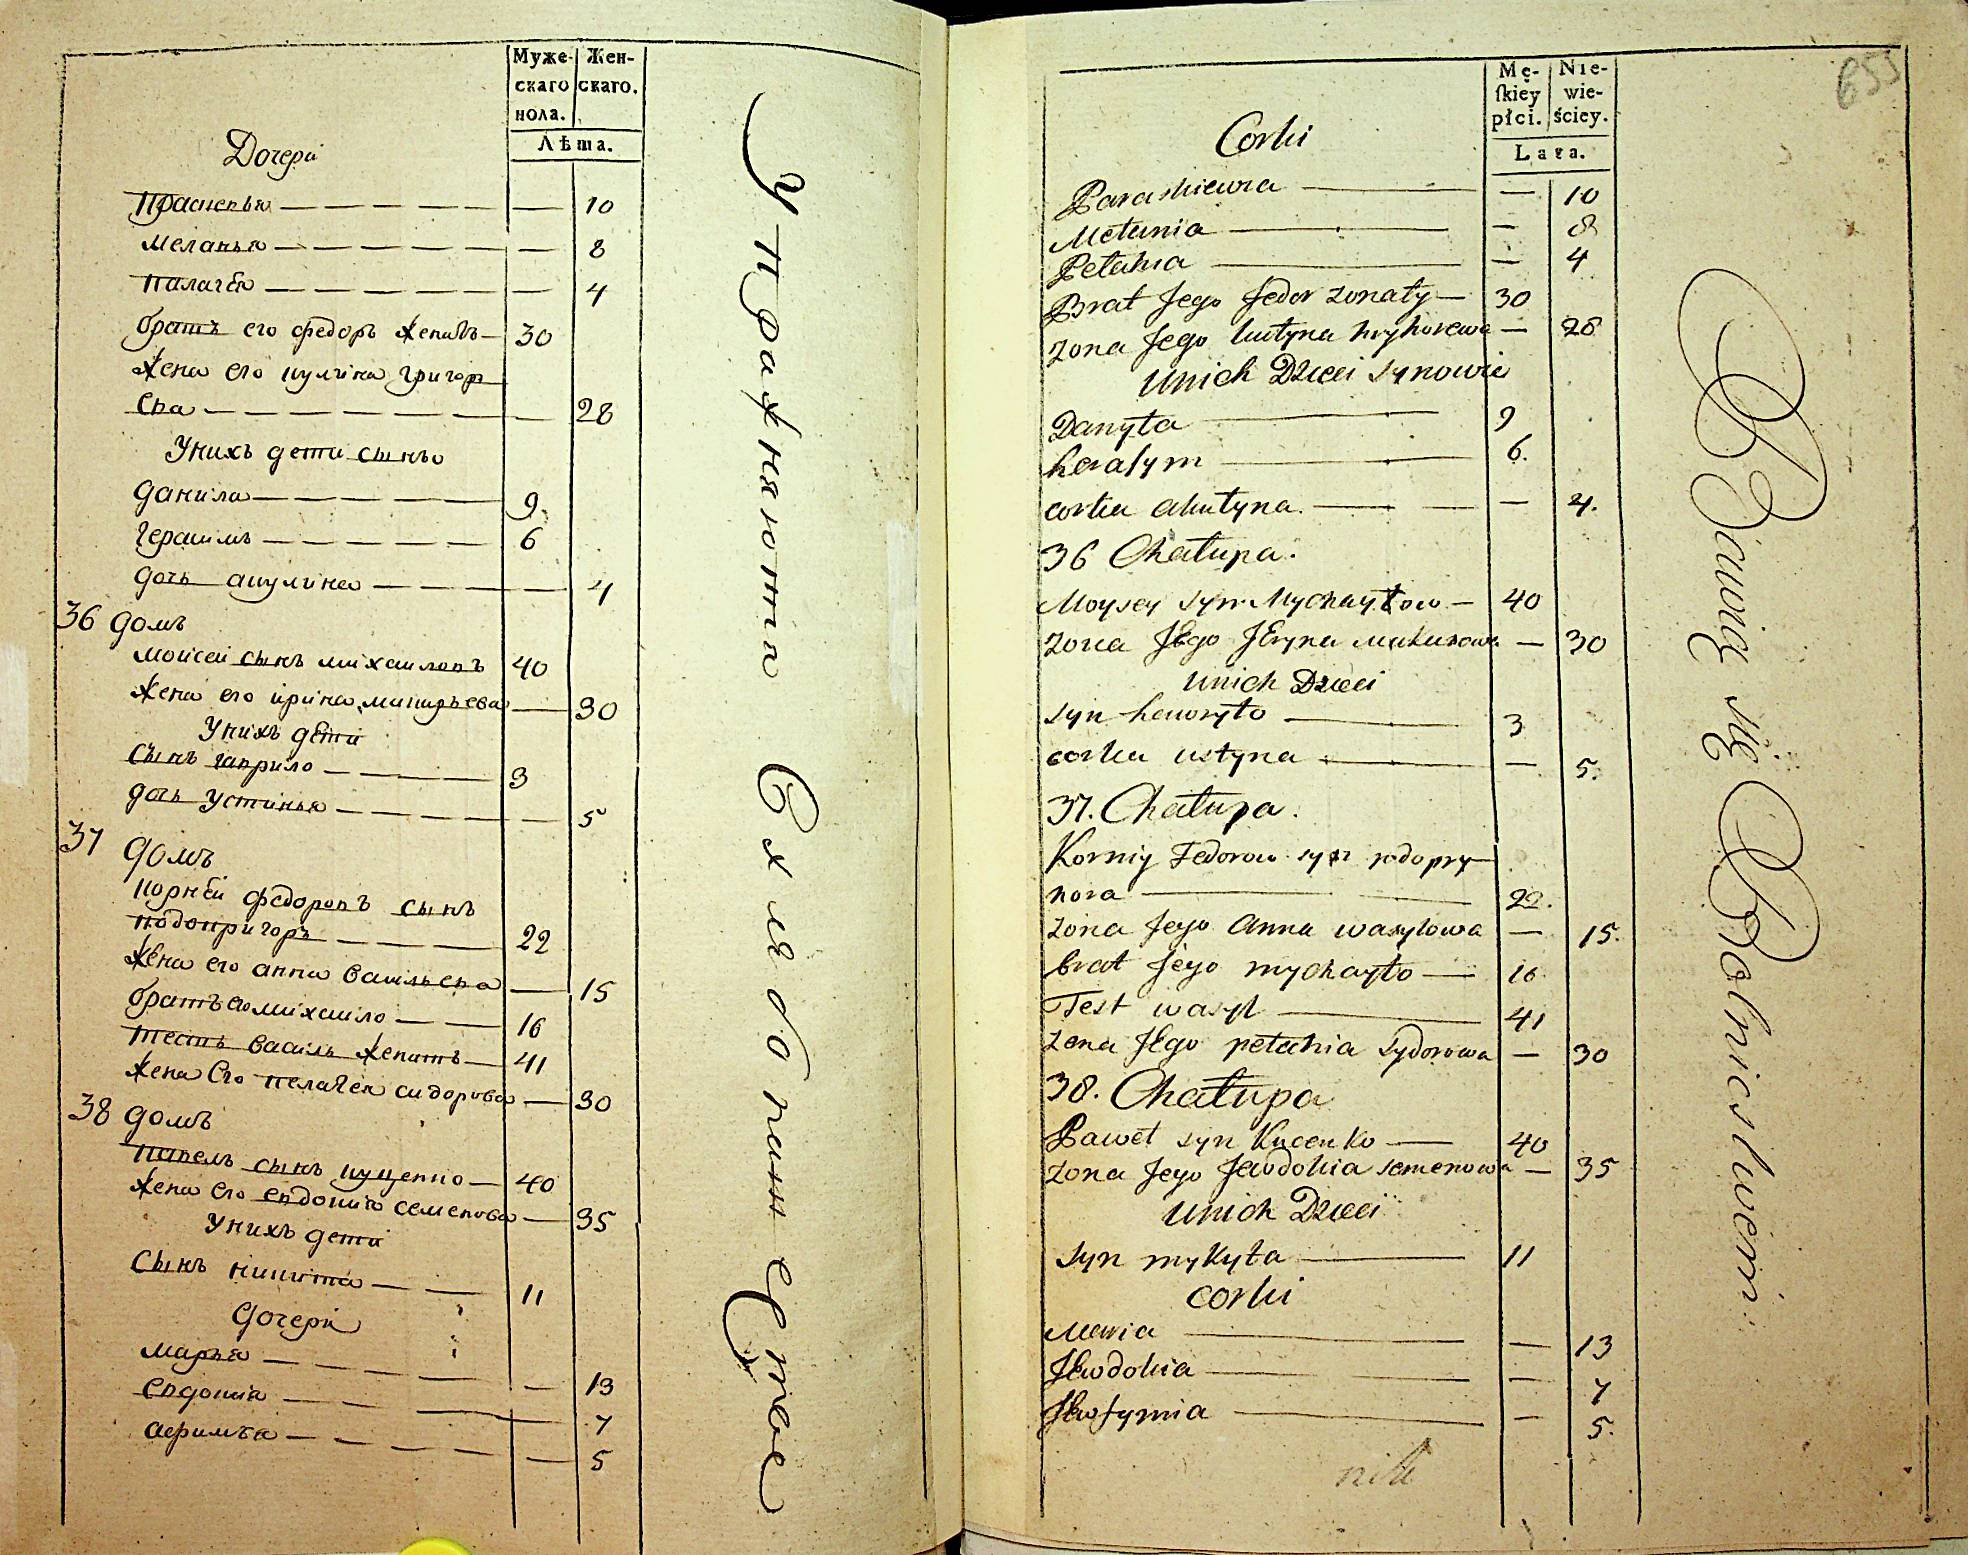 Муже- Жен-
скаго скаго.
пола.
Лѣта.
Дочери
Прасковья — — 10
Меланья — — 8
Палагея — — 4
братъ его федоръ женатъ — 30
Жена его кулина григорь
ева — — 28
У нихъ дети сыны
данила — 9
герасимъ — 6
дочь акулина — — 4
36 домъ
моисей сынъ михаиловъ 40
Жена его ирина макарьева — 30
У нихъ дети
сынъ гаврило — 3
дочь устинья — — 5
37 домъ
корнѣй федоровъ сынъ
подопригоръ — 22
Жена его анна васильева — 15
братъ его михаило — 16
тесть василь женатъ — 41
Жена его пелагея сидорова — 30
38 домъ
павелъ сынъ куценко — 40
Жена его евдокия семенова — 35
У нихъ дети
сынъ никита — 11
дочери
марья — — 13
евдокия — — 7
афимья — — 5
Упражняются
въ хлебопашестве
655
Mę- Nie-
skiey wie-
płci. ściey.
Lata.
Corki
Paraskiewia — — 10
Melania — — 8
Pelahia — — 4
Brat Jego fedor zonaty — 30
zona Jego kulyna hryhorewa — 28
Unich Dzieci synowie
Danyło — 9
herasym — 6.
corka akulyna — — 4.
36 Chałupa.
Moysey syn Mychayłow — 40
zona Jego Jeryna makarowa — 30
Unich Dzieci
syn hawryło — 3
corka ustyna — — 5.
37. Chałupa.
Korniy Fedorow syn podopry-
hora — 22.
zona Jego anna wasylowa — 15.
brat Jego mychayło — 16
Test wasyl — 41
zona Jego pelahia sydorowa — 30
38. Chałupa
Paweł syn Kucenko — 40
zona Jego Jewdokia semenowa — 35
Unich Dzieci
syn mykyta — 11
corki
Maria — — 13
Jewdokia — — 7
Jewfymia — — 5.
Bawią się Rolnictwem